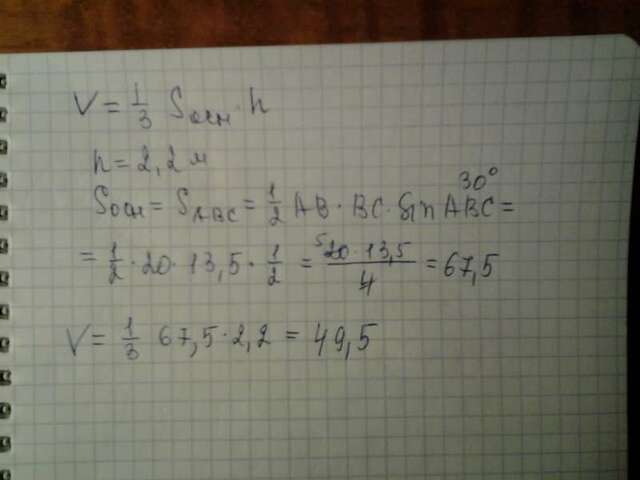 V = 1/3 Sосн · h
h = 2,2 м
Sосн = SABC = 1/2 AB · BC · Sin ABC 30° =
= 1/2 · 20 · 13,5 · 1/2 = 5 20 · 13,5 / 4 = 67,5
V = 1/3 67,5 · 2,2 = 49,5